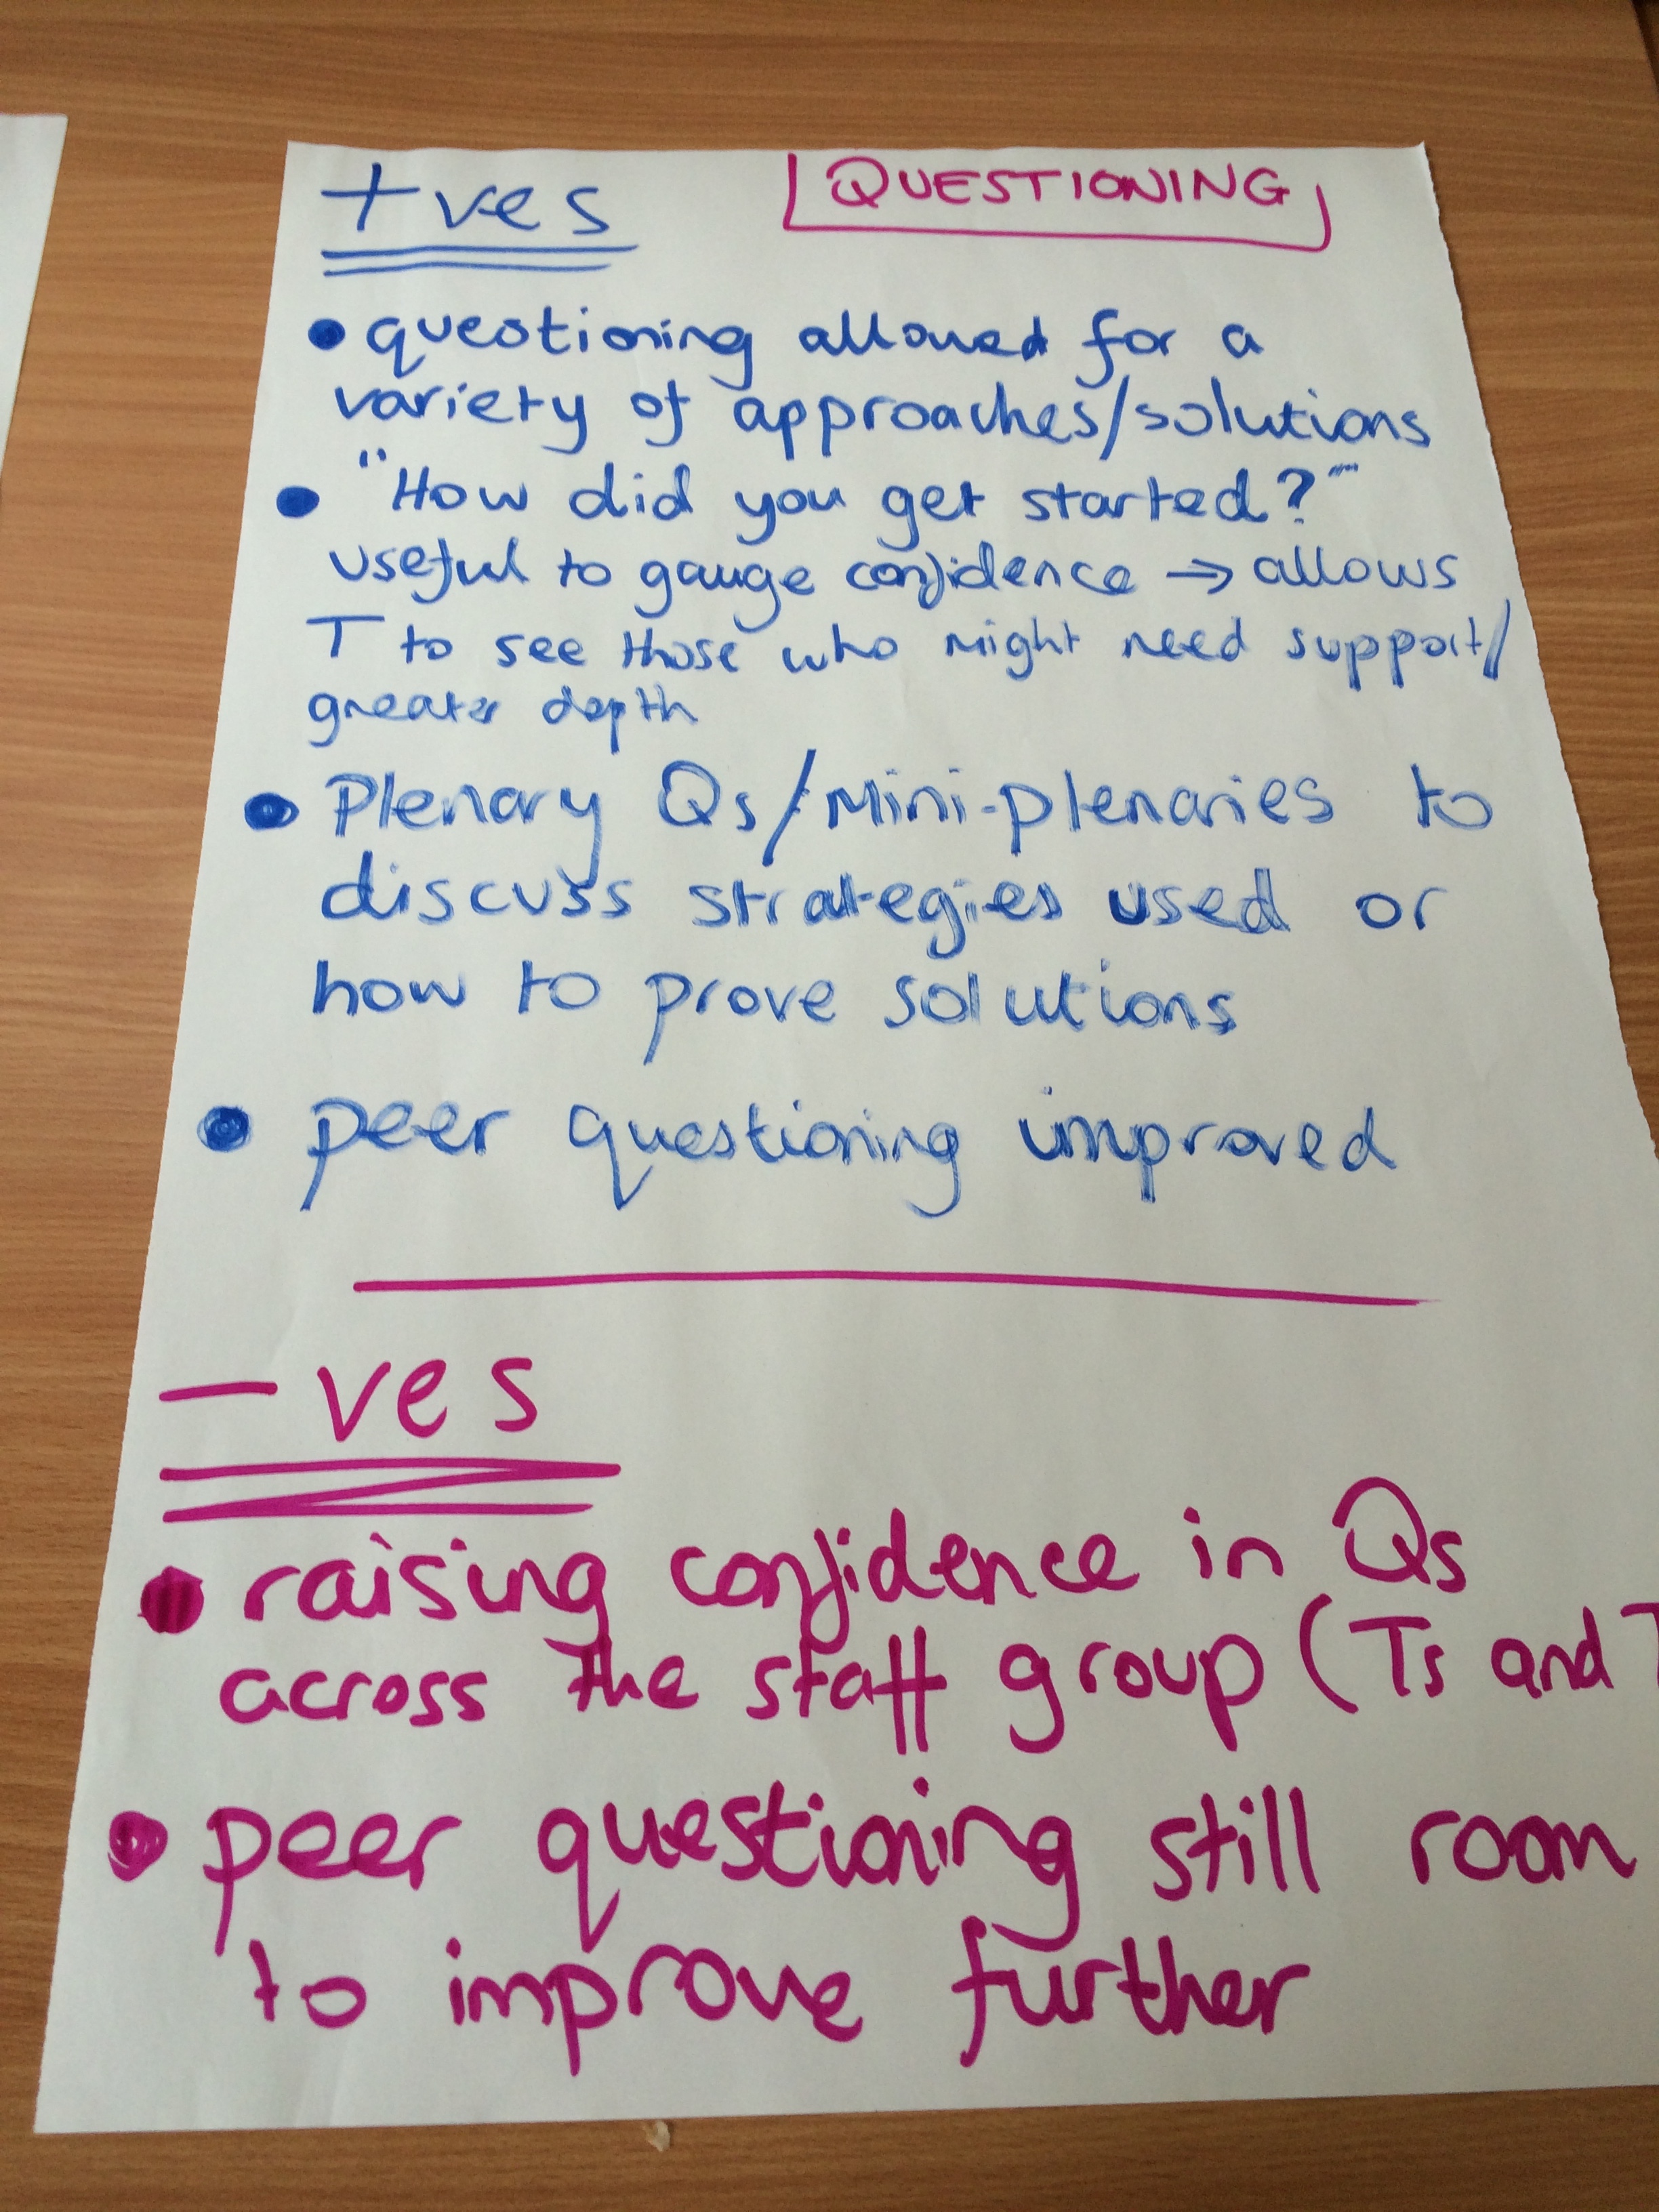 +ves QUESTIONING
• questioning allowed for a
variety of approaches/solutions
• "How did you get started?"
useful to gauge confidence → allows
T to see those who might need support/
greater depth
• Plenary Qs/Mini-plenaries to
discuss strategies used or
how to prove solutions
• peer questioning improved
-ves
• raising confidence in Qs
across the staff group (Ts and
• peer questioning still room
to improve further